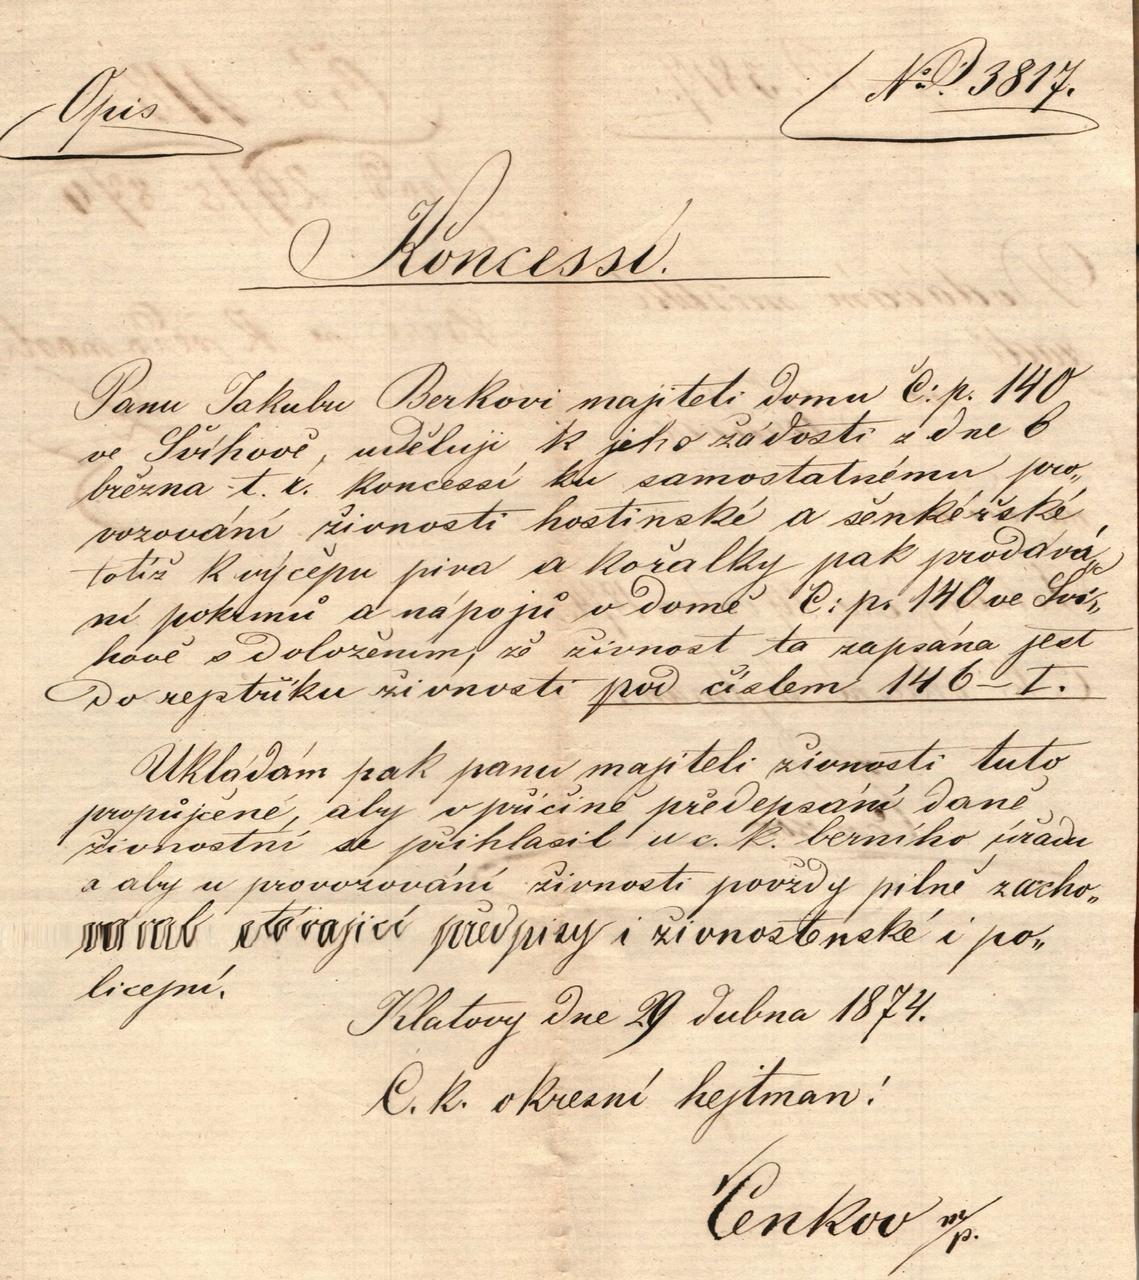 Opis
No. 3817.
Koncessí.
Panu Jakubu Berkovi majiteli domu č: p. 140
ve Švíhově, uděluji k jeho žádosti z dne 6
března t. r. koncessí ku samostatnému pro„
vozování živnosti hostinské a šénkéřské
totiž k výčepu piva a kořalky pak prodává„
ní pokrmů a nápojů v domě č: p. 140 ve Ŝví„
hově s doložením, že živnost ta zapsána jest
do rejstříku živnosti pod číslem 146–I.
Ukládám pak panu majiteli živnosti tuto
propůjčené, aby v příčině předepsání daně
živnostní se přihlasil u c. k. berního úřadu
a aby u provozování živnosti povždy pilně zacho„
předpisy i živnostenské i po„
licejní.
Klatovy dne 29 dubna 1874.
C. k. okresní hejtman:
Čenkov m/p.